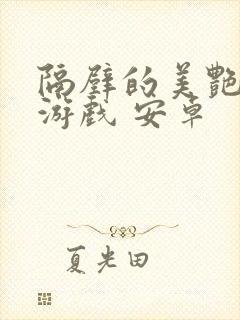 隔壁的美艷
游戏 安卓
夏光田